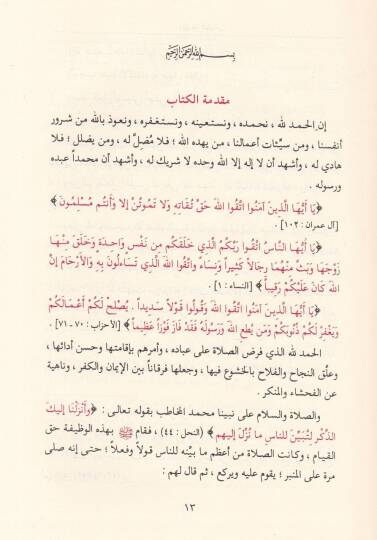 بسم الله الرحمن الرحيم
مقدمة الكتاب
إن الحمد لله ، نحمده ، ونستعينه ، ونستغفره ، ونعوذ بالله من شرور
أنفسنا ، ومن سيّئات أعمالنا ، من يهده الله ؛ فلا مُضِلَّ له ، ومن يضلل ؛ فلا
هادي له ، وأشهد أن لا إله إلا الله وحده لا شريك له ، وأشهد أن محمداً عبده
ورسوله .
﴿يَا أَيُّهَا الَّذِينَ آمَنُوا اتَّقُوا اللهَ حَقَّ تُقَاتِهِ وَلا تَمُوتُنَّ إلا وَأَنتُم مُسْلِمُونَ﴾
[آل عمران : ١٠٢] .
﴿يَا أَيُّهَا النَّاسُ اتَّقُوا رَبَّكُمُ الَّذِي خَلَقَكُم مِن نَفْسٍ وَاحِدَةٍ وَخَلَقَ مِنْهَا
زَوْجَهَا وَبَثَّ مِنْهُمَا رِجَالاً كَثِيراً وَنِسَاءً وَاتَّقُوا اللهَ الَّذِي تَسَاءَلُونَ بِهِ وَالأَرْحَامَ إِنَّ
اللهَ كَانَ عَلَيْكُمْ رَقِيباً﴾ [النساء : ١] .
﴿يَا أَيُّهَا الَّذِينَ آمَنُوا اتَّقُوا اللهَ وَقُولُوا قَوْلاً سَدِيداً . يُصْلِحْ لَكُمْ أَعْمَالَكُمْ
وَيَغْفِرْ لَكُمْ ذُنُوبَكُمْ وَمَن يُطِعِ اللهَ وَرَسُولَهُ فَقَدْ فَازَ فَوْزاً عَظِيماً﴾ [الأحزاب : ٧٠ - ٧١] .
الحمد لله الذي فرض الصلاة على عباده ، وأمرهم بإقامتها وحسن أدائها ،
وعلَّق النجاح والفلاح بالخشوع فيها ، وجعلها فرقاناً بين الإيمان والكفر ، وناهية
عن الفحشاء والمنكر .
والصلاة والسلام على نبينا محمد المخاطب بقوله تعالى : ﴿وَأَنْزَلْنَا إِلَيكَ
الذِّكْرَ لِتُبَيِّنَ للناسِ ما نُزِّلَ إليهم﴾ (النحل : ٤٤) ، فقام ﷺ بهذه الوظيفة حق
القيام ، وكانت الصلاة من أعظم ما بيَّنه للناس قولاً وفعلاً ؛ حتى إنه صلى
مرة على المنبر ؛ يقوم عليه ويركع ، ثم قال لهم :
١٣